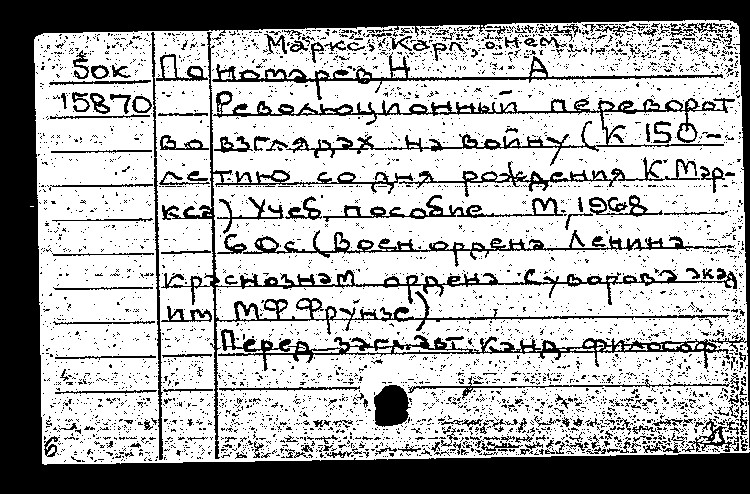 Маркс, Карл, о нем
5ок Пономарев, Н А
15870 Революционный переворот
во взглядах на войну (К 150-
летию со дня рождения К. Мар-
кса). Учеб. пособие М., 1968
60с (Воен. ордена Ленина
краснознам ордена Суворова акад
им. М.Ф. Фрунзе)
Перед загл. авт: канд. философ
6 31